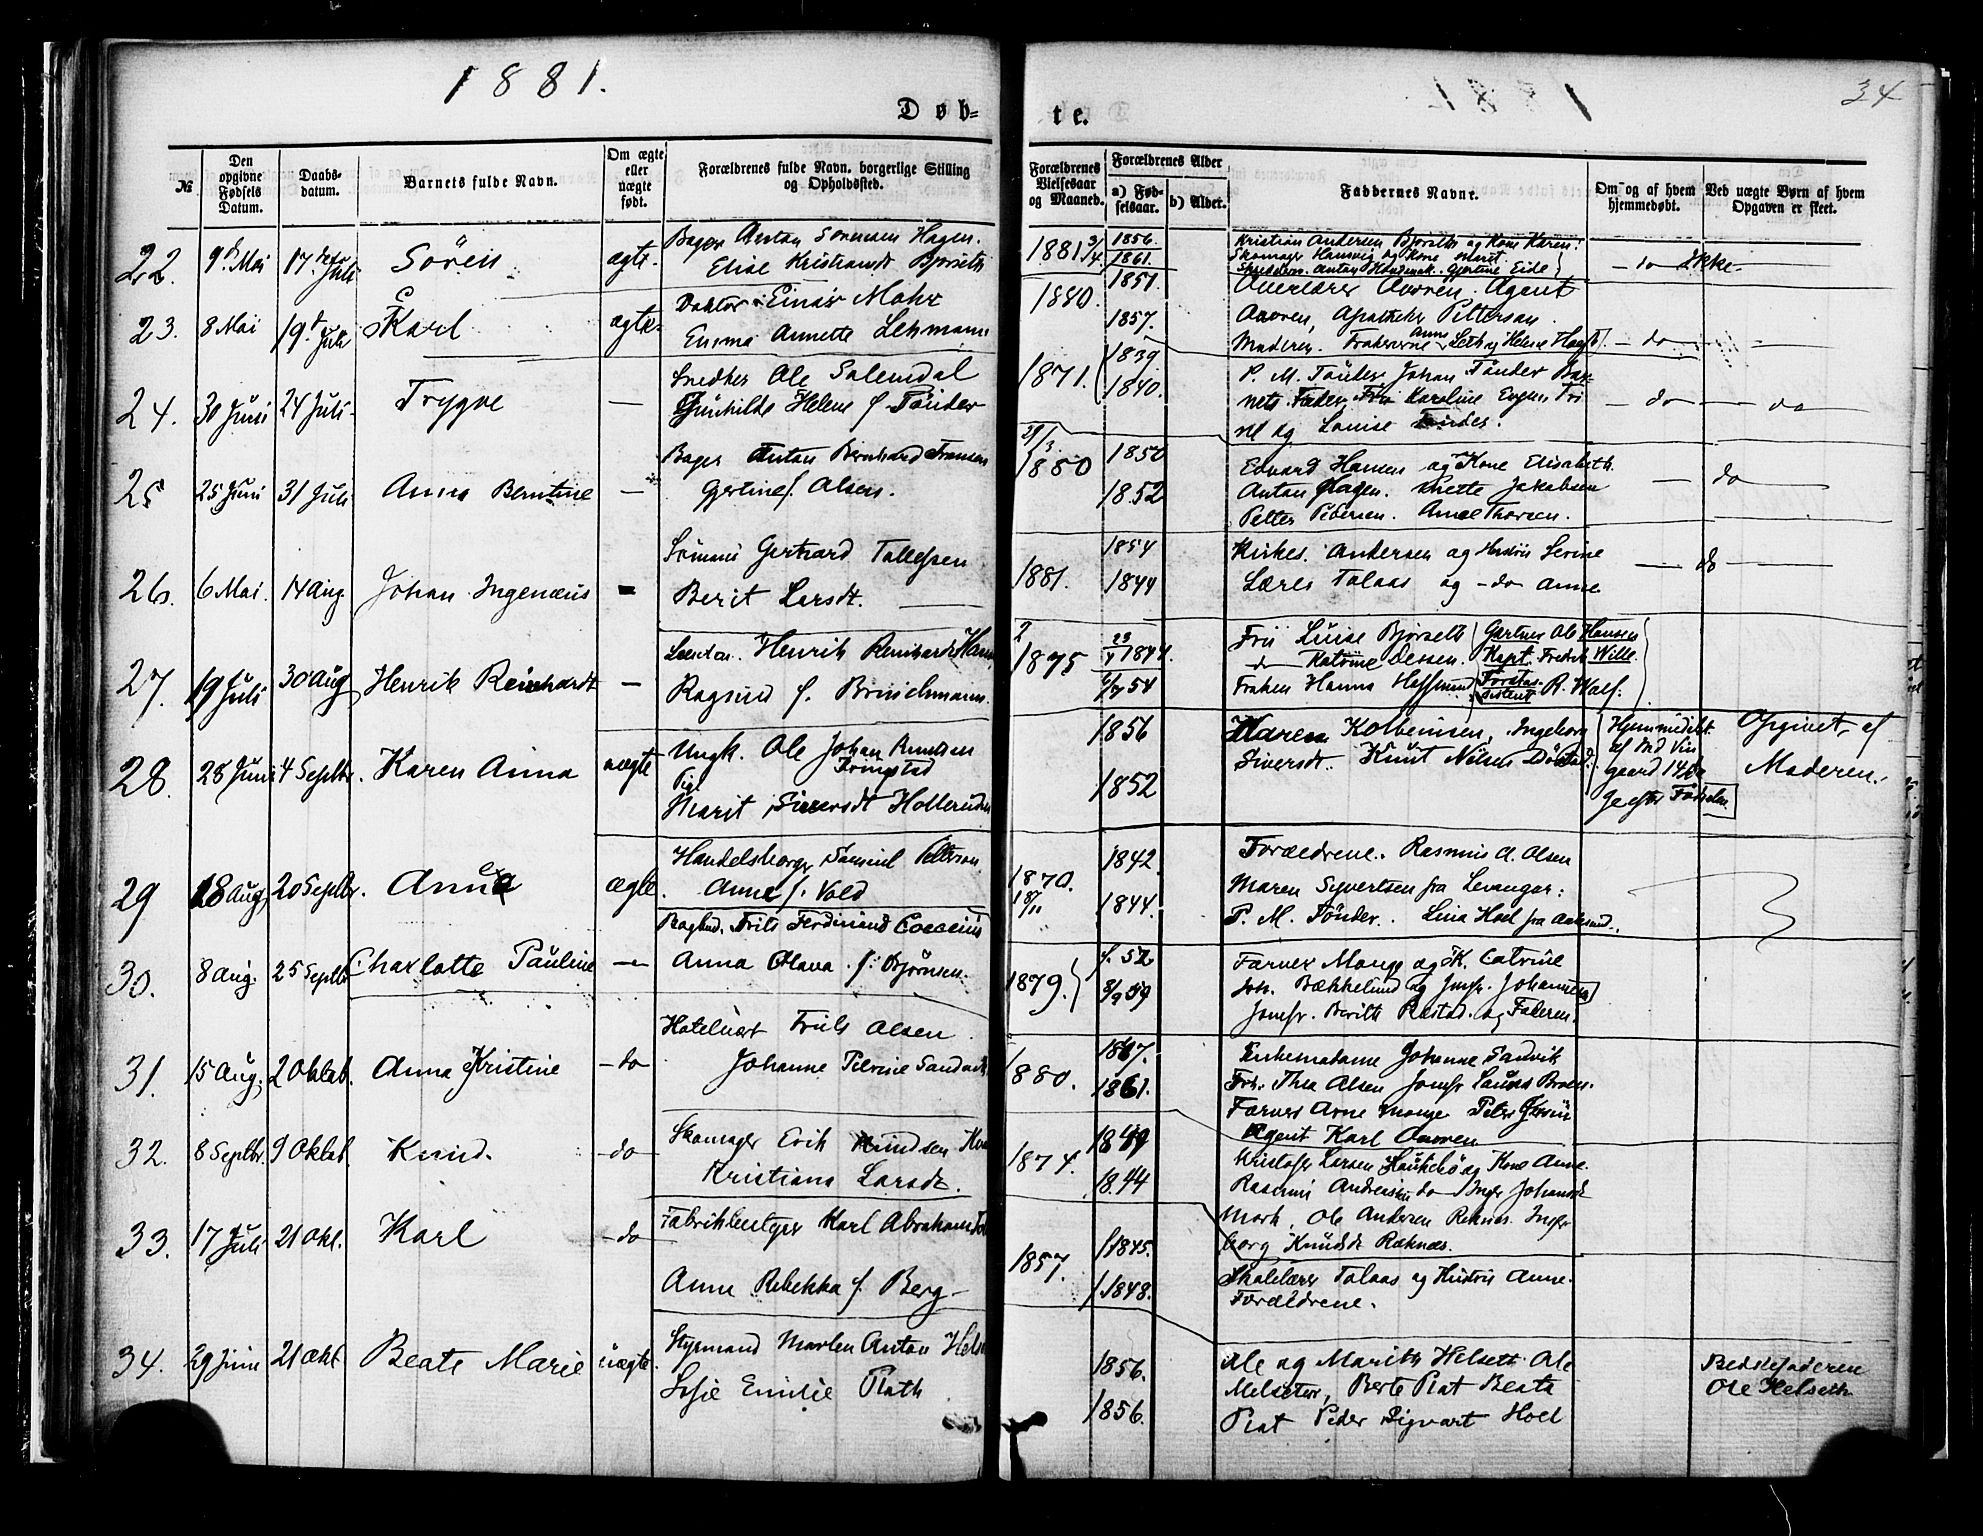 1881.
34
Døb=
te.
№
Den opgivne Fødsels Datum.
Daabs-datum.
Barnets fulde Navn.
Om ægte eller uægte født.
Forældrenes fulde Navn, borgerlige Stilling og Opholdssted.
Forældrenes Vielsesaar og Maaned.
Forældrenes Alder
a) Fødselsaar.
b) Alder.
Faddernes Navne.
Om og af hvem hjemmedøbt.
Ved uægte Børn af hvem Opgaven er skeet.
22. 9de Mai 17de Juli Sören ægte. Bager Anton Sörensen Hagen.
Elise Kristiansdt Bjørseth
1881 3/4 1856. 1861. Kristian Andersen Bjørseth og Kone Karen:
Skomager Hansvig og Kone Marit
Anton Gjertine Eide
do Ikke
23. 8 Mai 19d Juli Karl ægte Doktor Einar Mohr
Emma Annette Lehmann
1880. 1851. 1857. Overlærer Aarven. Agent
Aarven, Apotheker Pettersen
Moderen. Frøknerne Anna Leth og Helene
do —
24. 30 Juni 24 Juli Trygve — Snedker Ole Solemdal
Gunhilde Helene f. Tönder
1871. 1839 1840. P. M. Tönder Johan Tönder Bar-
nets Fader, Karoline
og Louise Tönder.
do do
25 25 Juni 31 Juli Anna Berntine — Bager Anton Bernhard Fransen
Gjertine f. Olsen.
29/3 1880 1850 1852 Edvard Hansen og Kone Elisabeth
Anton Hagen. Anette Jakobsen
Petter Pedersen. Anne Thoresen.
do
26. 6 Mai. 14 Aug. Johan Ingenæus Sömand Gerhard Tollefsen
Berit Larsdt.
1881. 1854 1844 Kirkes. Andersen og Hustru Serine
Lærer Talaas og do Anne
do
27. 19 Juli 30 Aug Henrik Reinhardt — Henrik Reinhardt
Ragnild f. Brinchmann.
2 1875 23/4 1844. 54 Frü Luise Bjørseth Gartner Ole Hansen
do Katrine Dessen. Kapt. Fredrik Wille.
Frøken Hanna Forstas-
sistent R. Wolf.
28. 28 Juni 4 Septbr. Karen Anna uægte Ungk. Ole Johan Knudsen
Pige
Marit Siversdt Holterud
1856 1852 Karen Kolbensen, Ingeborg
Siversdt. Knut Nilsen
Hjemmedöbt
gaard 14
efter Födselen
Opgivet af
Moderen.
29 18 Aug 20 Septbr. Anna ægte. Handelsborger Samuel Petterson
Anna f. Vold
1870. 18/11 1842 1844. Forældrene. Rasmus A. Olsen
Maren Syvertsen fra Levanger:
P. M. Tönder. Lina Hoel fra Aalesund.
30. 8 Aug. 25 Septbr Charlotte Pauline — Frits Ferdinand Cocceius
Anna Olava f. Bjørnsen.
1879. f. 52 8/9 59 Farver Monge og K. Catrine
Bækkelund og Jomfr. Johannesen
Jomfr. Berith og Faderen.
31. 15 Aug. 2 Oktob. Anna Kristine do Hotelvert Truls Olsen
Johanne Petrine Sandvik
1880. 1847. 1861. Enkemadame Johanne Sandvik
Frk. Thea Olsen Jomfr Laura Broen.
Farver Arne Monge Peter
Agent Karl Aarven
32. 8 Septbr. 9 Oktob. Knud. do Skomager Erik Knudsen
Kristiane Larsdt.
1874. 1849 1844 Kristofer Larsen og Kone Anne.
Rasmus Andreassen do Inger Johansdt
Mork, Ole Andersen Reknes. Inge-
borg Knudsdt Ræknæs.
33. 17 Juli 21 Okt. Karl do Fabrikbestyrer Karl Abraham
Anne Rebekka f. Berg
1857. 1845. 1848. Skolelærer Talaas og Hustru Anne.
Forældrene.
34. 29 Juni 21 Okt Beate Marie uægte. Styrmand Morten Anton
Sofie Emilie Plath
1856. 1856. Ole og Marith Helseth Ole
Melseter, Berte Plat Beata
Plat Peder Sigvart Hoel
Bedstefaderen
Ole Helseth